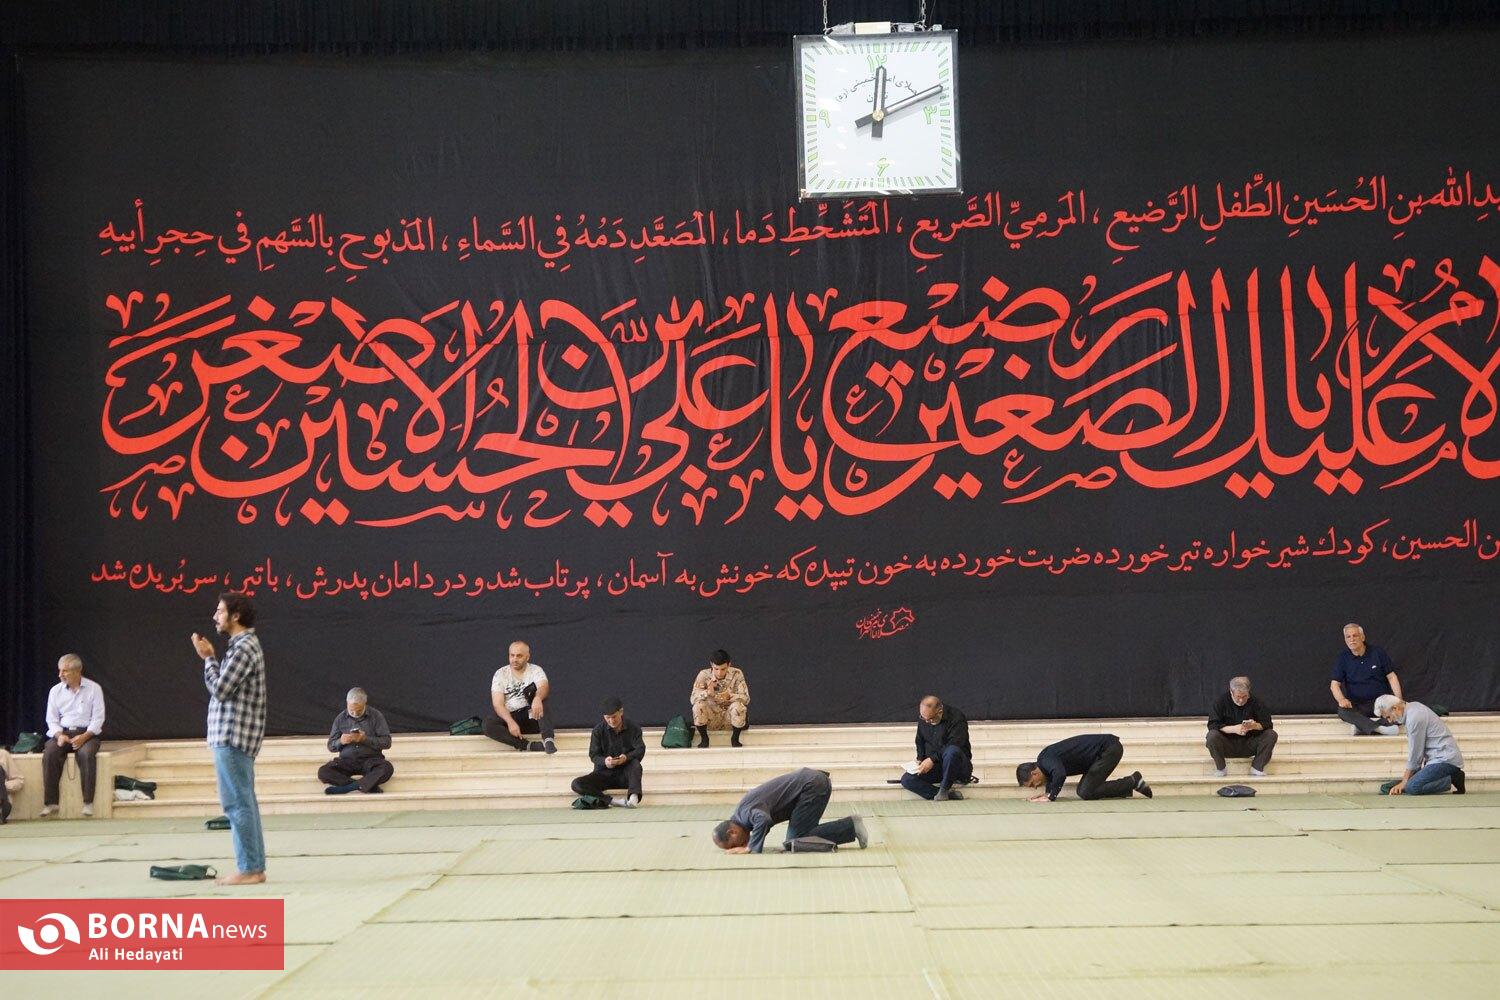 ۱۲
مصلای امام خمینی (ره)
تهران
۹
۳
۶
عبدالله بنِ الحُسَینِ الطِّفلِ الرَّضیعِ ، المَرمِيِّ الصَّریعِ ، المُتَشَحِّطِ دَما ، المُصَعَّدِ دَمُهُ فِي السَّماءِ ، المَذبوحِ بِالسَّهمِ في حِجرِ أبیهِ
علیك یا الرضیع الصغیر یا علي بن الحسین الاصغر
الحسین ، کودك شیرخواره تیر خورده ضربت خورده به خون تپیده که خونش به آسمان ، پرتاب شد و در دامان پدرش ، با تیر ، سر بُریده شد
BORNAnews
Ali Hedayati